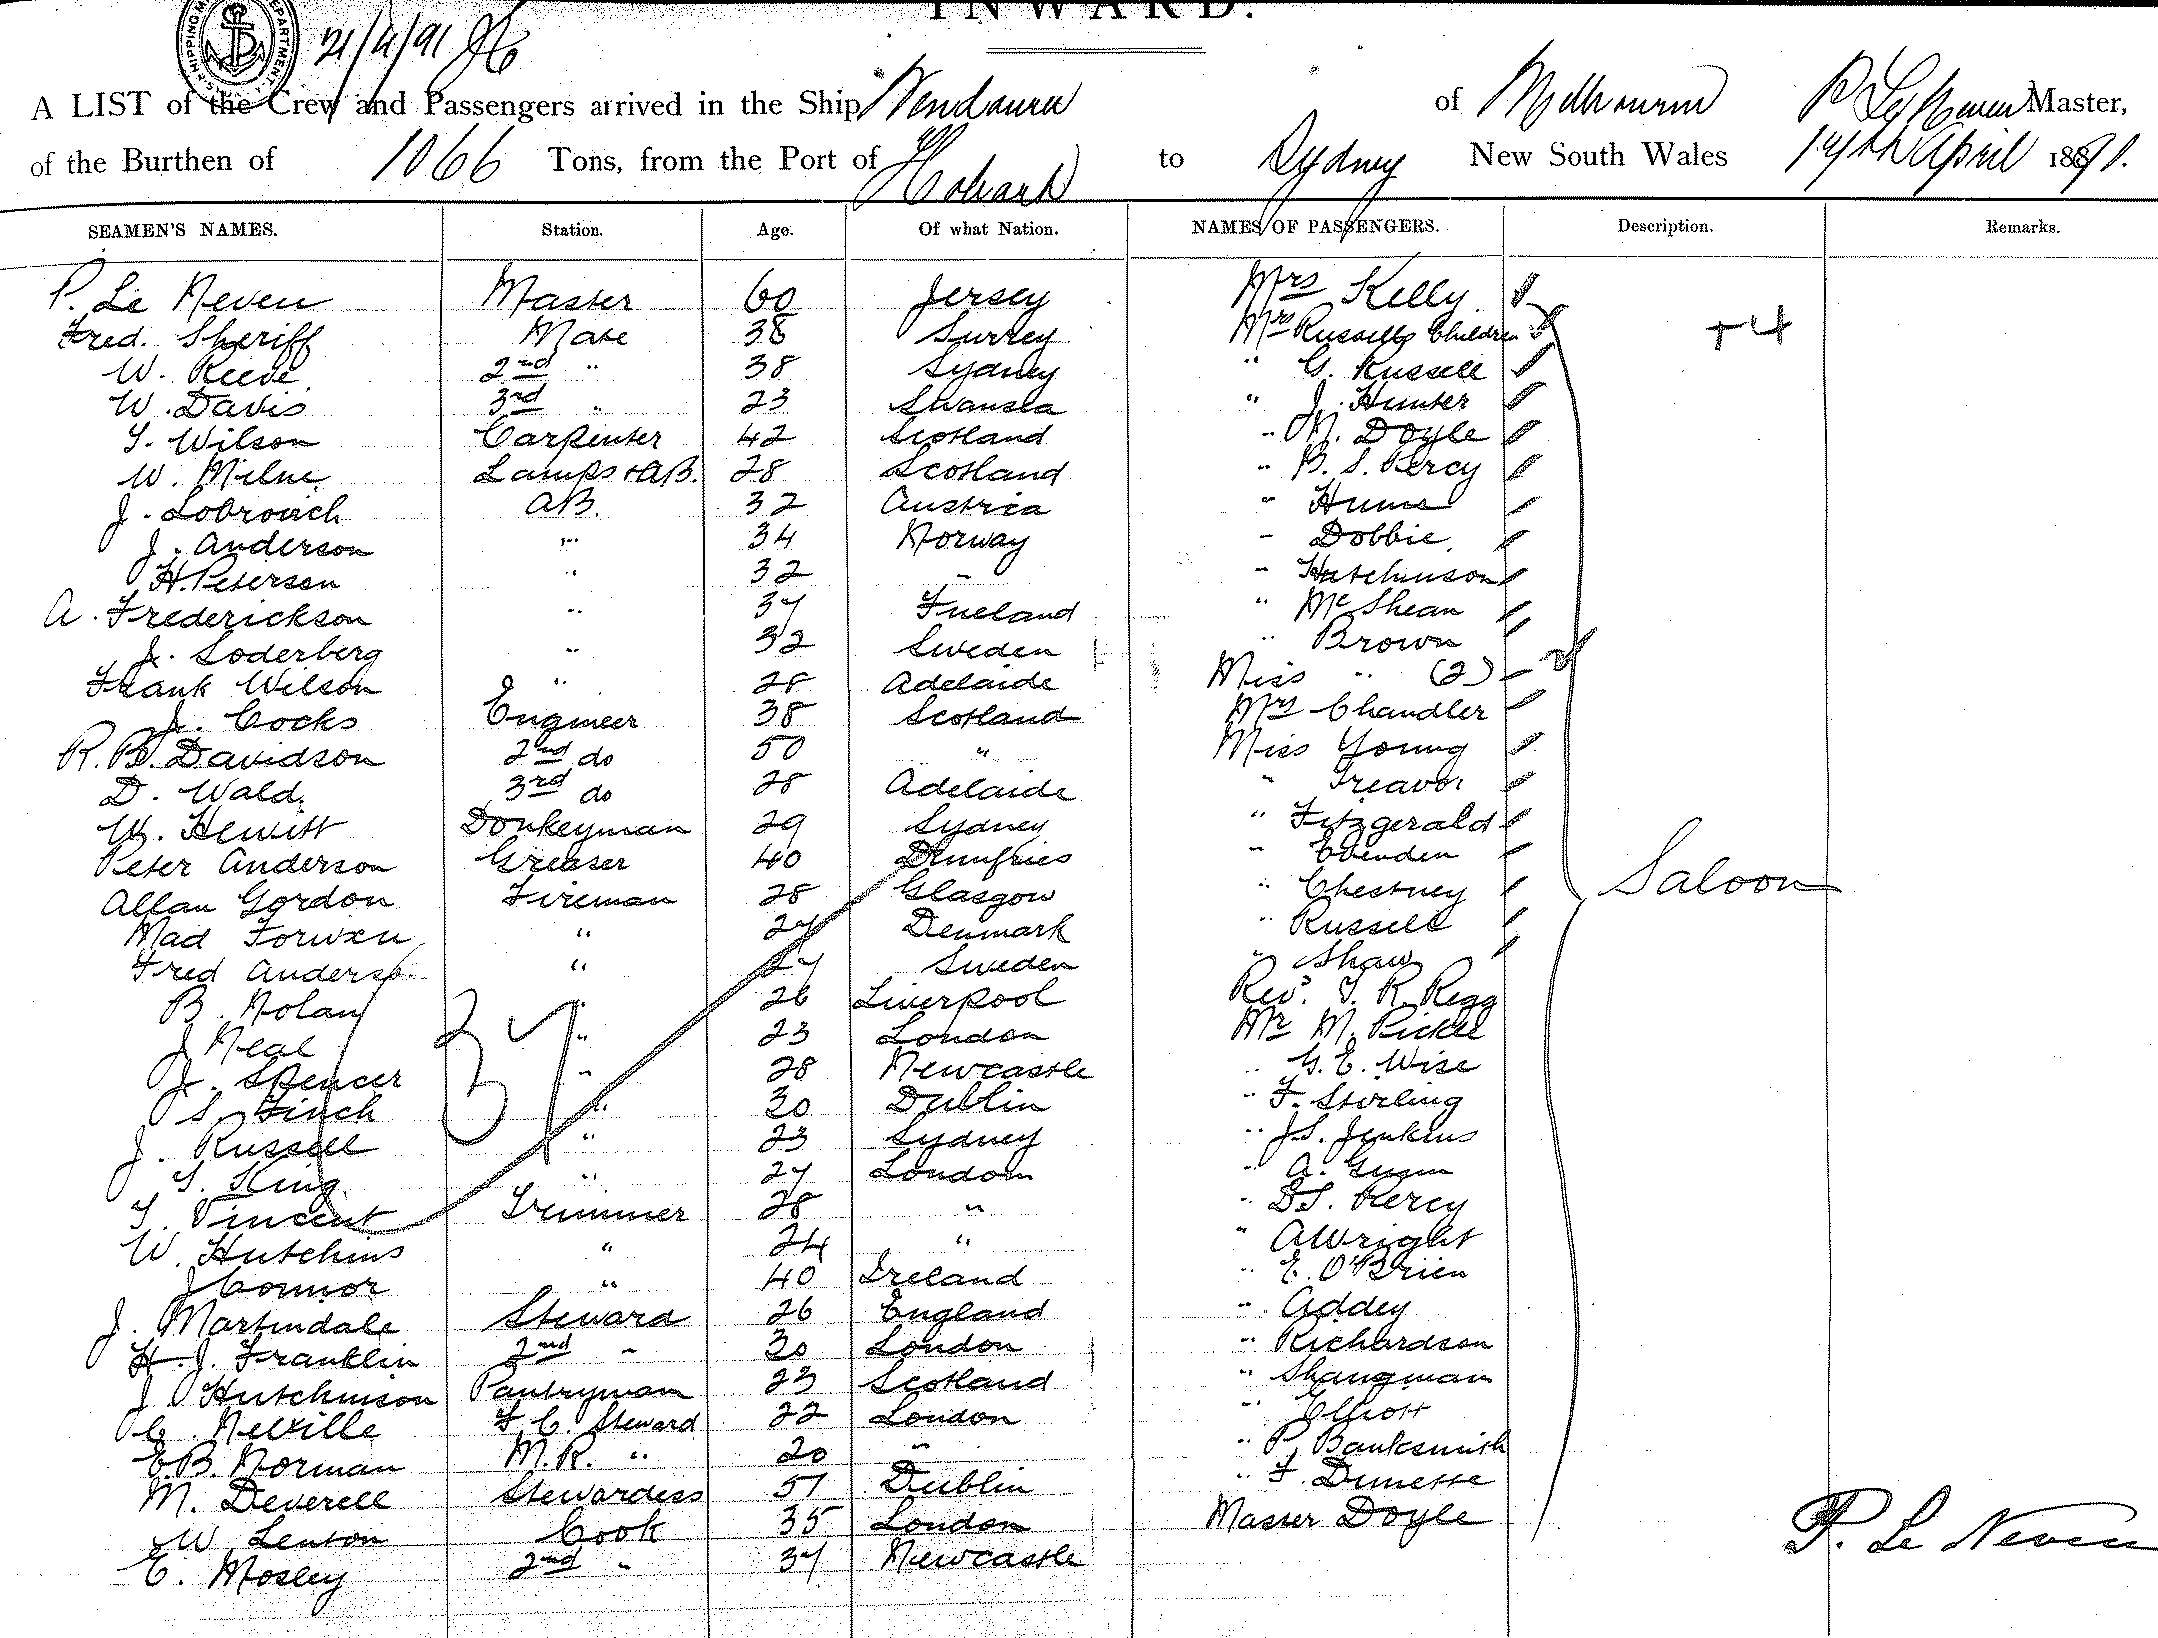 INWARD.
SHIPPING M DEPARTMENT
21/4/91
A LIST of the Crew and Passengers arrived in the Ship Wendouree of Melbourne P Le Neveu Master,
of the Burthen of 1066 Tons, from the Port of Hobart to Sydney New South Wales April 1891.
SEAMEN'S NAMES. Station. Age. Of what Nation. NAMES OF PASSENGERS. Description. Remarks.
P. Le Neveu Master 60 Jersey Mrs Kelly
Fred. Sheriff Mate 38 Surrey Mrs Russell & Children +4
W. Reeve 2nd " 38 Sydney " G. Russell
W. Davis 3rd " 23 Swansea " J. Hunter
T. Wilson Carpenter 42 Scotland " M. Doyle
W. Milne Lamps & AB. 28 Scotland " B. S. Percy
J. Lobrovich AB. 32 Austria " Hume
J. Anderson " 34 Norway " Dobbie
H. Petersen " 32 " " Hutchinson
A. Frederickson " 37 Finland " McShean
J. Soderberg " 32 Sweden " Brown
Frank Wilson " 28 Adelaide Miss " (2)
J. Cocks Engineer 38 Scotland Mrs Chandler
R. B. Davidson 2nd do 50 " Miss Young
D. Wald 3rd do 28 Adelaide " Treavor
W. Hewitt Donkeyman 29 Sydney " Fitzgerald
Peter Anderson Greaser 40 Dumfries "
Allan Gordon Fireman 28 Glasgow " Chestney Saloon
Mad " 27 Denmark " Russell
Fred Anderso. " 27 Sweden " Shaw
B. Nolan " 26 Liverpool Rev. T. R. Regg
J Neal " 23 London Mr M. Pickle
J. Spencer " 28 Newcastle " G. E. Wise
S. Finch " 30 Dublin " F. Stirling
J. Russell " 23 Sydney " J.S. Jenkins
T. King " 27 London " A. Gunn
T. Vincent Trimmer 28 " " B.S. Percy
W. Hutchins " 24 " " A Wright
J Connor " 40 Ireland " E. O'Brien
J. Martindale Steward 26 England " Addey
H. J. Franklin 2nd " 30 London " Richardson
J. Hutchinson Pantryman 23 Scotland " Shangman
C. Neville F. C. Steward 22 London " Elliott
E.B. Norman M.R. " 20 " " P. Banksmith
M. Deverell Stewardess 57 Dublin " F.
W. Lenton Cook 35 London Master Doyle
E. Mosley 2nd " 37 Newcastle
P. Le Neveu